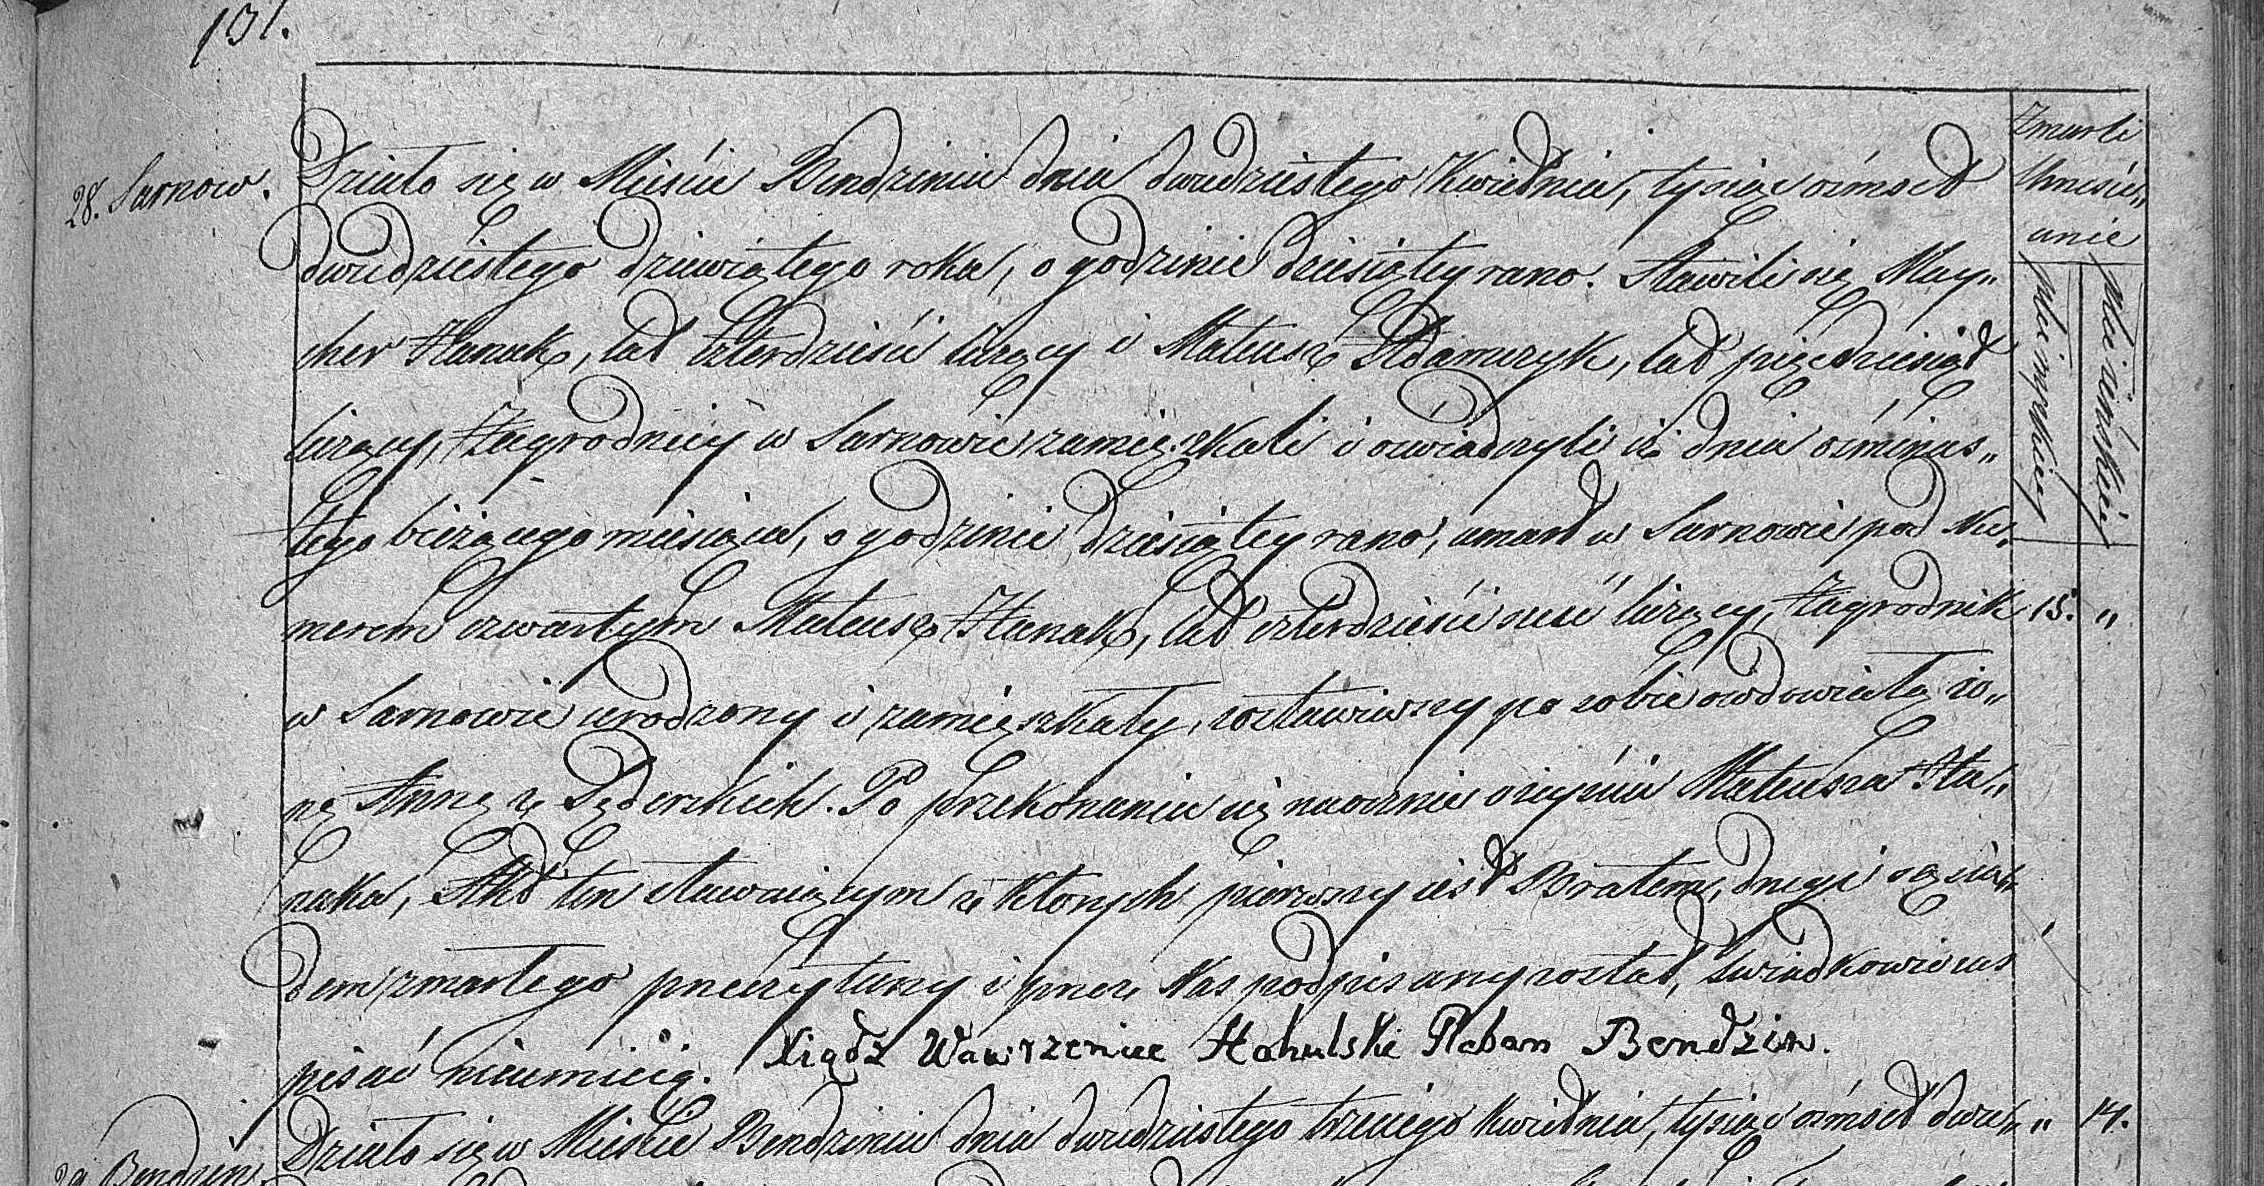 131.
Zmarli
Chrześci„
anie
płci męzkiey
płci żeńskiey
28. Sarnow.
Działo się w Mieście Bendzinie dnia dwudziestego Kwietnia, tysiąc ośmset
dwudziestego dziewiątego roku, o godzinie dziesiątey rano. Stawili się Mey„
cher Hanak, lat czterdzieści liczący i Mateusz Adamczyk, lat pięćdziesiąt
liczący, Zagrodnicy w Sarnowie zamięszkali i oswiadczyli iż dnia ośmnas„
tego bieżącego miesiąca, o godzinie dziesiątey rano, umarł w Sarnowie pod Nu„
merem czwartym Mateusz Hanak, lat czterdzieści sześć liczący, Zagrodnik
15. „
w Sarnowie urodzony i zamięszkały, zostawiwszy po sobie owdowiałą żo„
nę Annę z Dęderskich. Po przekonaniu się naocznie o zeyściu Mateusza Ha„
naka, Akt ten stawaiącym z ktorych pierwszy iest Bratem, drugi sąsia„
dem zmarłego przeczytany i przez Nas podpisany został, Swiadkowie zaś
pisać nieumieią. Xiądz Wawrzeniec Hahulski Pleban Bendzin.
Działo się w Mieście Bendzinie dnia dwudziestego trzeciego Kwietnia, tysiąc ośmset dwu„
„ 14.
29. Bendzin